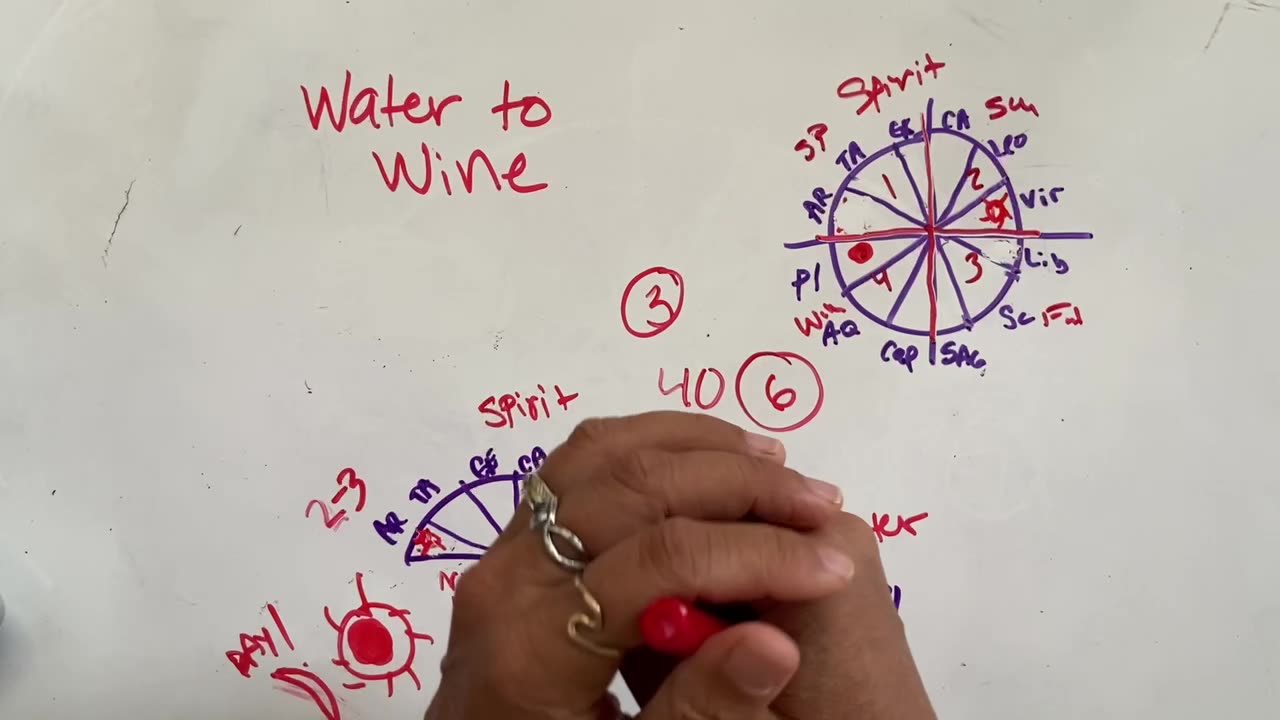 Water to
Wine
Spirit
SP
TA
GE
CA
Sum
LEO
AR
1
2
Vir
PI
4
3
Lib
Win
AQ
Sc
Fal
Cap
SAG
3
40
6
Spirit
2-3
AR
TA
GE
CA
DAY 1